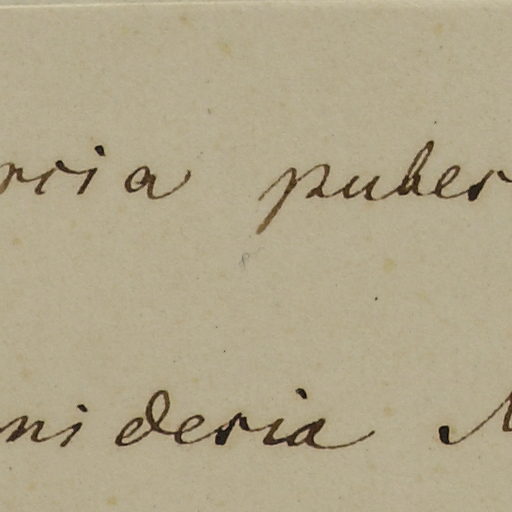 rcia puber
nideria M